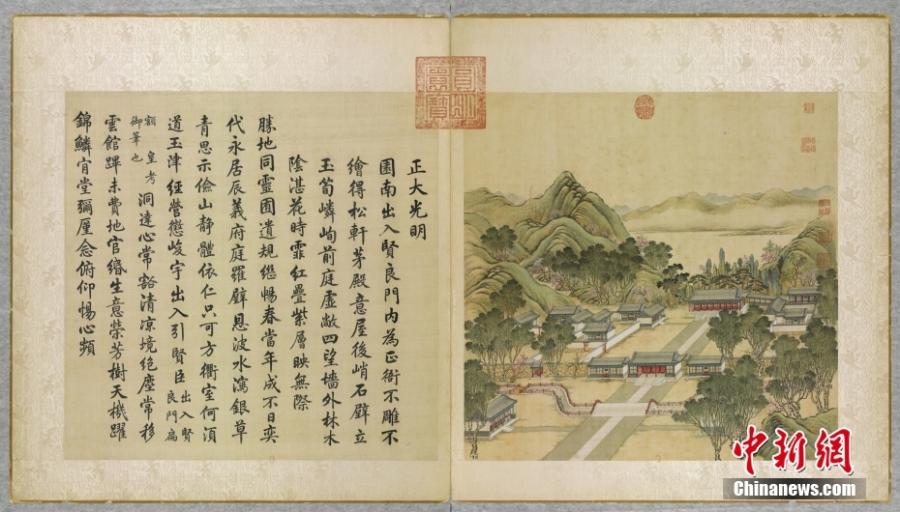 正大光明
園南出入賢良門內為正衙不雕不
繪得松軒茅殿意屋後峭石壁立
玉筍嶙峋前庭虛敞四望墻外林木
陰湛花時霏紅疊紫層映無際
勝地同靈囿遺規繼暢春當年成不日奕
代永居辰義府庭羅壁恩波水瀉銀草
青思示儉山靜體依仁只可方衢室何須
道玉津經營懲峻宇出入引賢臣出入賢
良門扁
額皇考
御筆也洞達心常豁清凉境絕塵常移
雲館蹕未費地官緡生意榮芳樹天機躍
錦鱗肯堂彌厪念俯仰惕心頻
中新網
Chinanews.com